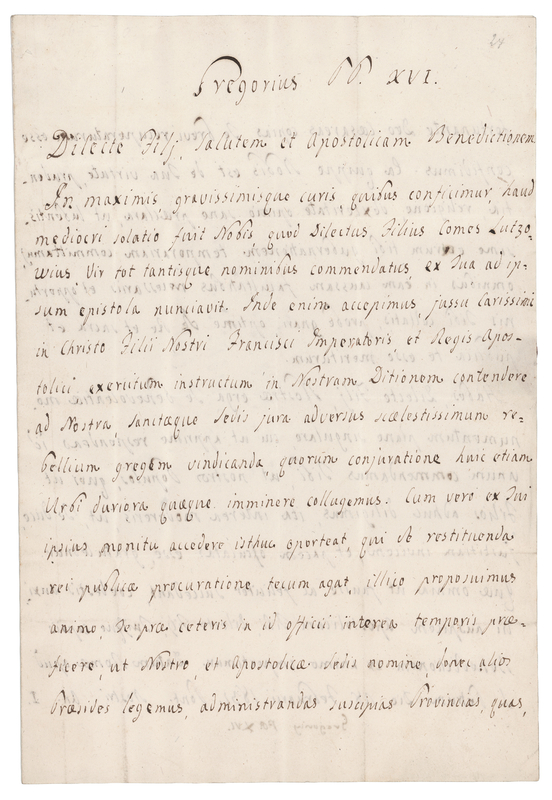 24
Gregorius PP. XVI.
Dilecte Filj, Salutem et Apostolicam Benedictionem
In maximis gravissimisque curis, quibus conficimur, haud
mediocri solatio fuit Nobis, quod Dilectus Filius Comes Lutzo-
wius Vir tot tantisque nominibus commendatus, ex Tua ad ip-
sum epistola nunciavit. Inde enim accepimus, jussu Carissimi
in Christo Filii Nostri Francisci Imperatoris et Regis Apos-
tolici exercitum instructum in Nostram Ditionem contendere
ad Nostra, Sanctæque Sedis jura adversus scælestissimum re-
bellium gregem vindicanda, quorum conjuratione huic etiam
Urbi duriora quæque imminere collagemus. Cum vero ex Tui
ipsius monitu accedere isthuc oporteat qui de restituenda
rei publicæ procuratione tecum agat, illico proposuimus
animo, Te præ ceteris in id officii interea temporis præ-
ficere, ut Nostro, et Apostolicæ Sedis nomine, donec alios
Præsides legemus, administrandas suscipias Provincias, quas,